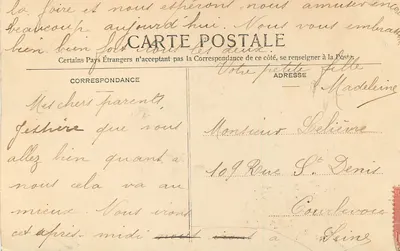 la foire et nous espérons nous amuser encore
beaucoup aujourd'hui. Nous vous embrassons
bien bien fort tous les deux.
CARTE POSTALE
Certains Pays Étrangers n'acceptant pas la Correspondance de ce côté, se renseigner à la Poste
Votre petite fille
CORRESPONDANCE
ADRESSE
Madeleine
Mes chers parents,
J'espère que vous
allez bien quant a
nous cela va au
mieux. Nous irons
cet après midi à
Monsieur Lelièvre
109 Rue St Denis
Courbevoie
Seine